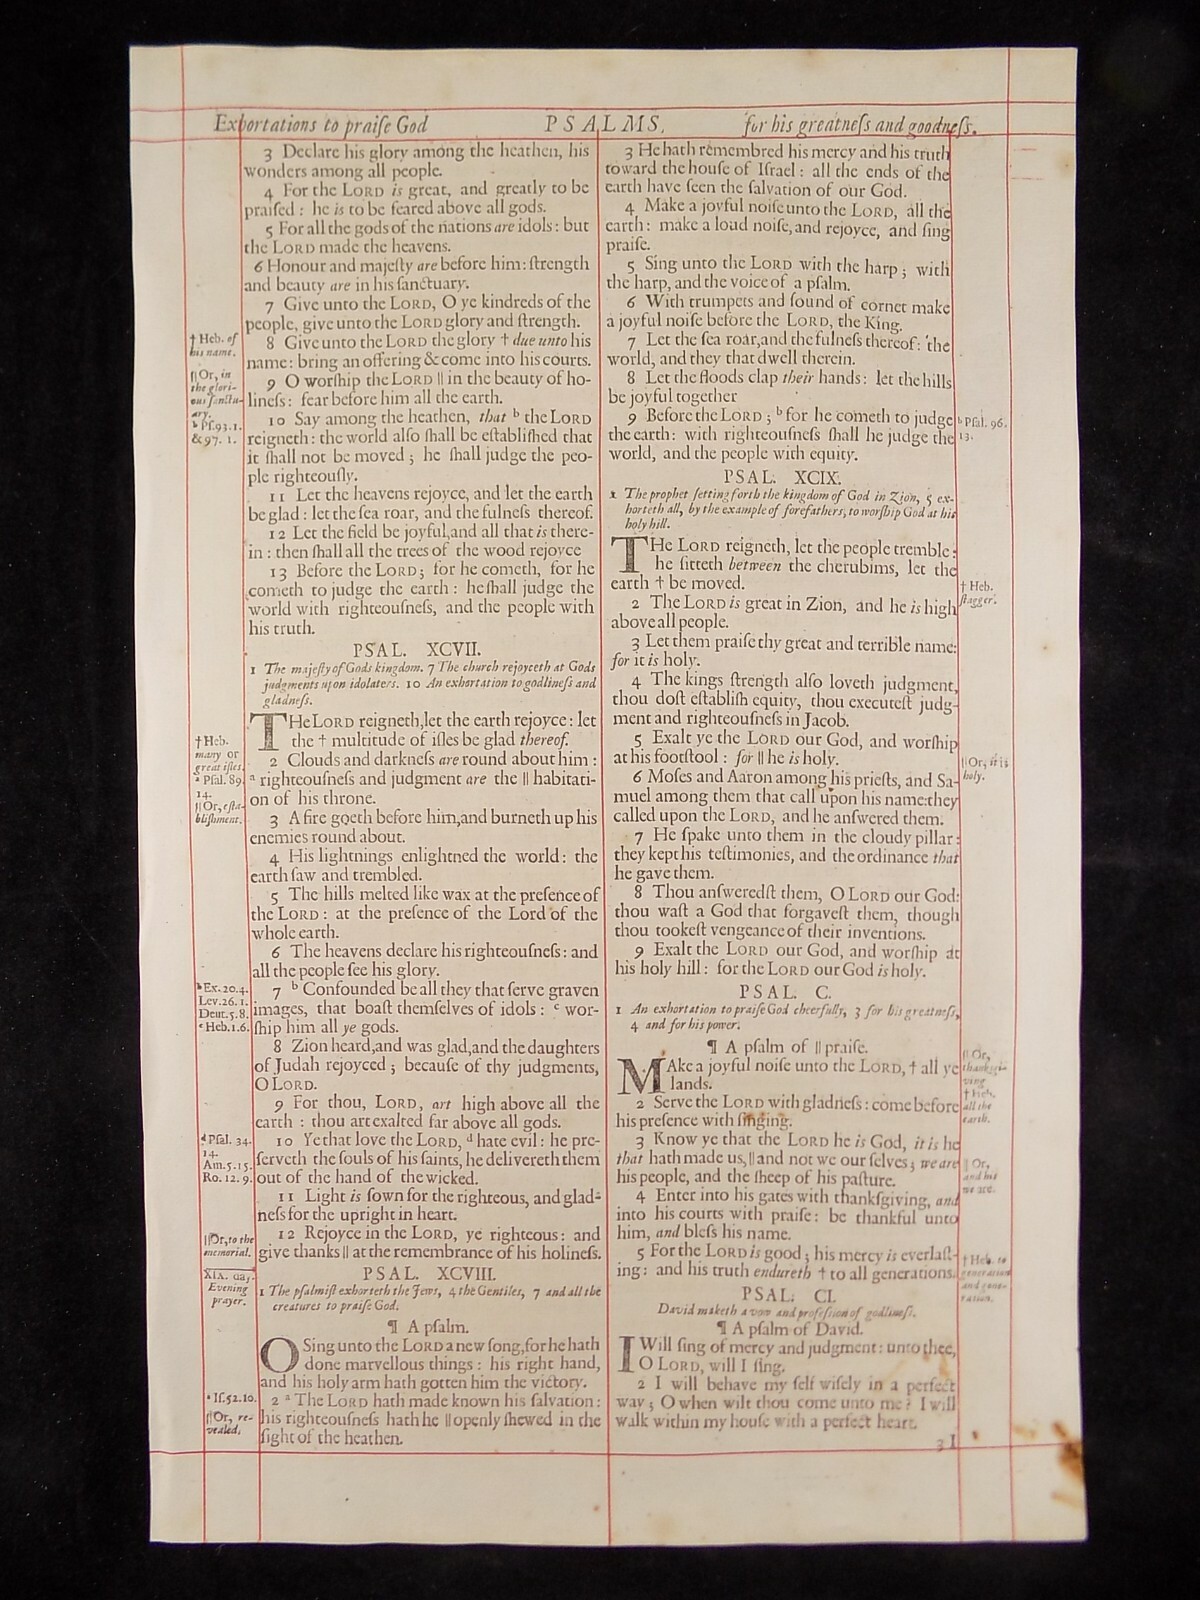 Exhortations to praiſe God PSALMS, for his greatneſs and goodneſs.
3 Declare his glory among the heathen, his
wonders among all people.
4 For the LORD is great, and greatly to be
praiſed: he is to be feared above all gods.
5 For all the gods of the nations are idols: but
the LORD made the heavens.
6 Honour and majeſty are before him: ſtrength
and beauty are in his ſanctuary.
7 Give unto the LORD, O ye kindreds of the
people, give unto the LORD glory and ſtrength.
8 Give unto the LORD the glory † due unto his
name: bring an offering & come into his courts.
9 O worſhip the LORD || in the beauty of ho-
lineſs: fear before him all the earth.
10 Say among the heathen, that b the LORD
reigneth: the world alſo ſhall be eſtabliſhed that
it ſhall not be moved; he ſhall judge the peo-
ple righteouſly.
11 Let the heavens rejoyce, and let the earth
be glad: let the ſea roar, and the fulneſs thereof.
12 Let the field be joyful, and all that is there-
in: then ſhall all the trees of the wood rejoyce
13 Before the LORD; for he cometh, for he
cometh to judge the earth: he ſhall judge the
world with righteouſneſs, and the people with
his truth.
PSAL. XCVII.
1 The majeſty of Gods kingdom. 7 The church rejoyceth at Gods
judgments upon idolaters. 10 An exhortation to godlineſs and
gladneſs.
THe LORD reigneth, let the earth rejoyce: let
the † multitude of iſles be glad thereof.
2 Clouds and darkneſs are round about him:
a righteouſneſs and judgment are the || habitati-
on of his throne.
3 A fire goeth before him, and burneth up his
enemies round about.
4 His lightnings enlightned the world: the
earth ſaw and trembled.
5 The hills melted like wax at the preſence of
the LORD: at the preſence of the Lord of the
whole earth.
6 The heavens declare his righteouſneſs: and
all the people ſee his glory.
7 b Confounded be all they that ſerve graven
images, that boaſt themſelves of idols: c wor-
ſhip him all ye gods.
8 Zion heard, and was glad, and the daughters
of Judah rejoyced; becauſe of thy judgments,
O LORD.
9 For thou, LORD, art high above all the
earth: thou art exalted far above all gods.
10 Ye that love the LORD, d hate evil: he pre-
ſerveth the ſouls of his ſaints, he delivereth them
out of the hand of the wicked.
11 Light is ſown for the righteous, and glad-
neſs for the upright in heart.
12 Rejoyce in the LORD, ye righteous: and
give thanks || at the remembrance of his holineſs.
PSAL. XCVIII.
1 The pſalmiſt exhorteth the Jews, 4 the Gentiles, 7 and all the
creatures to praiſe God.
¶ A pſalm.
O Sing unto the LORD a new ſong, for he hath
done marvellous things: his right hand,
and his holy arm hath gotten him the victory.
2 a The LORD hath made known his ſalvation:
his righteouſneſs hath he || openly ſhewed in the
ſight of the heathen.
† Heb. of
his name.
|| Or, in
the glori-
ous ſanctu-
ary.
b Pſ. 93. 1.
& 97. 1.
† Heb.
many or
great iſles.
a Pſal. 89.
14.
|| Or, eſta-
bliſhment.
b Ex. 20. 4.
Lev. 26. 1.
Deut. 5. 8.
c Heb. 1. 6.
d Pſal. 34.
14.
Am. 5. 15.
Ro. 12. 9.
|| Or, to the
memorial.
XIX. day.
Evening
prayer.
a Iſ. 52. 10.
|| Or, re-
vealed,
3 He hath remembred his mercy and his truth
toward the houſe of Iſrael: all the ends of the
earth have ſeen the ſalvation of our God.
4 Make a joyful noiſe unto the LORD, all the
earth: make a loud noiſe, and rejoyce, and ſing
praiſe.
5 Sing unto the LORD with the harp; with
the harp, and the voice of a pſalm.
6 With trumpets and ſound of cornet make
a joyful noiſe before the LORD, the King.
7 Let the ſea roar, and the fulneſs thereof: the
world, and they that dwell therein.
8 Let the floods clap their hands: let the hills
be joyful together
9 Before the LORD; b for he cometh to judge
the earth: with righteouſneſs ſhall he judge the
world, and the people with equity.
PSAL. XCIX.
1 The prophet ſetting forth the kingdom of God in Zion, 5 ex-
horteth all, by the example of forefathers, to worſhip God at his
holy hill.
THe LORD reigneth, let the people tremble:
he ſitteth between the cherubims, let the
earth † be moved.
2 The LORD is great in Zion, and he is high
above all people.
3 Let them praiſe thy great and terrible name:
for it is holy.
4 The kings ſtrength alſo loveth judgment,
thou doſt eſtabliſh equity, thou executeſt judg-
ment and righteouſneſs in Jacob.
5 Exalt ye the LORD our God, and worſhip
at his footſtool: for || he is holy.
6 Moſes and Aaron among his prieſts, and Sa-
muel among them that call upon his name: they
called upon the LORD, and he anſwered them.
7 He ſpake unto them in the cloudy pillar:
they kept his teſtimonies, and the ordinance that
he gave them.
8 Thou anſweredſt them, O LORD our God:
thou waſt a God that forgaveſt them, though
thou tookeſt vengeance of their inventions.
9 Exalt the LORD our God, and worſhip at
his holy hill: for the LORD our God is holy.
PSAL. C.
1 An exhortation to praiſe God cheerfully, 3 for his greatneſs,
4 and for his power.
¶ A pſalm of || praiſe.
MAke a joyful noiſe unto the LORD, † all ye
lands.
2 Serve the LORD with gladneſs: come before
his preſence with ſinging.
3 Know ye that the LORD he is God, it is he
that hath made us, || and not we our ſelves; we are
his people, and the ſheep of his paſture.
4 Enter into his gates with thankſgiving, and
into his courts with praiſe: be thankful unto
him, and bleſs his name.
5 For the LORD is good; his mercy is everlaſt-
ing: and his truth endureth † to all generations.
PSAL. CI.
David maketh a vow and profeſsion of godlineſs.
¶ A pſalm of David.
I Will ſing of mercy and judgment: unto thee,
O LORD, will I ſing.
2 I will behave my ſelf wiſely in a perfect
way; O when wilt thou come unto me? I will
walk within my houſe with a perfect heart.
3 I
b Pſal. 96.
13.
† Heb.
ſtagger.
|| Or, it is
holy.
|| Or,
thankſgi-
ving
† Heb.
all the
earth.
|| Or,
and his
we are.
† Heb. to
generation
and gene-
ration.